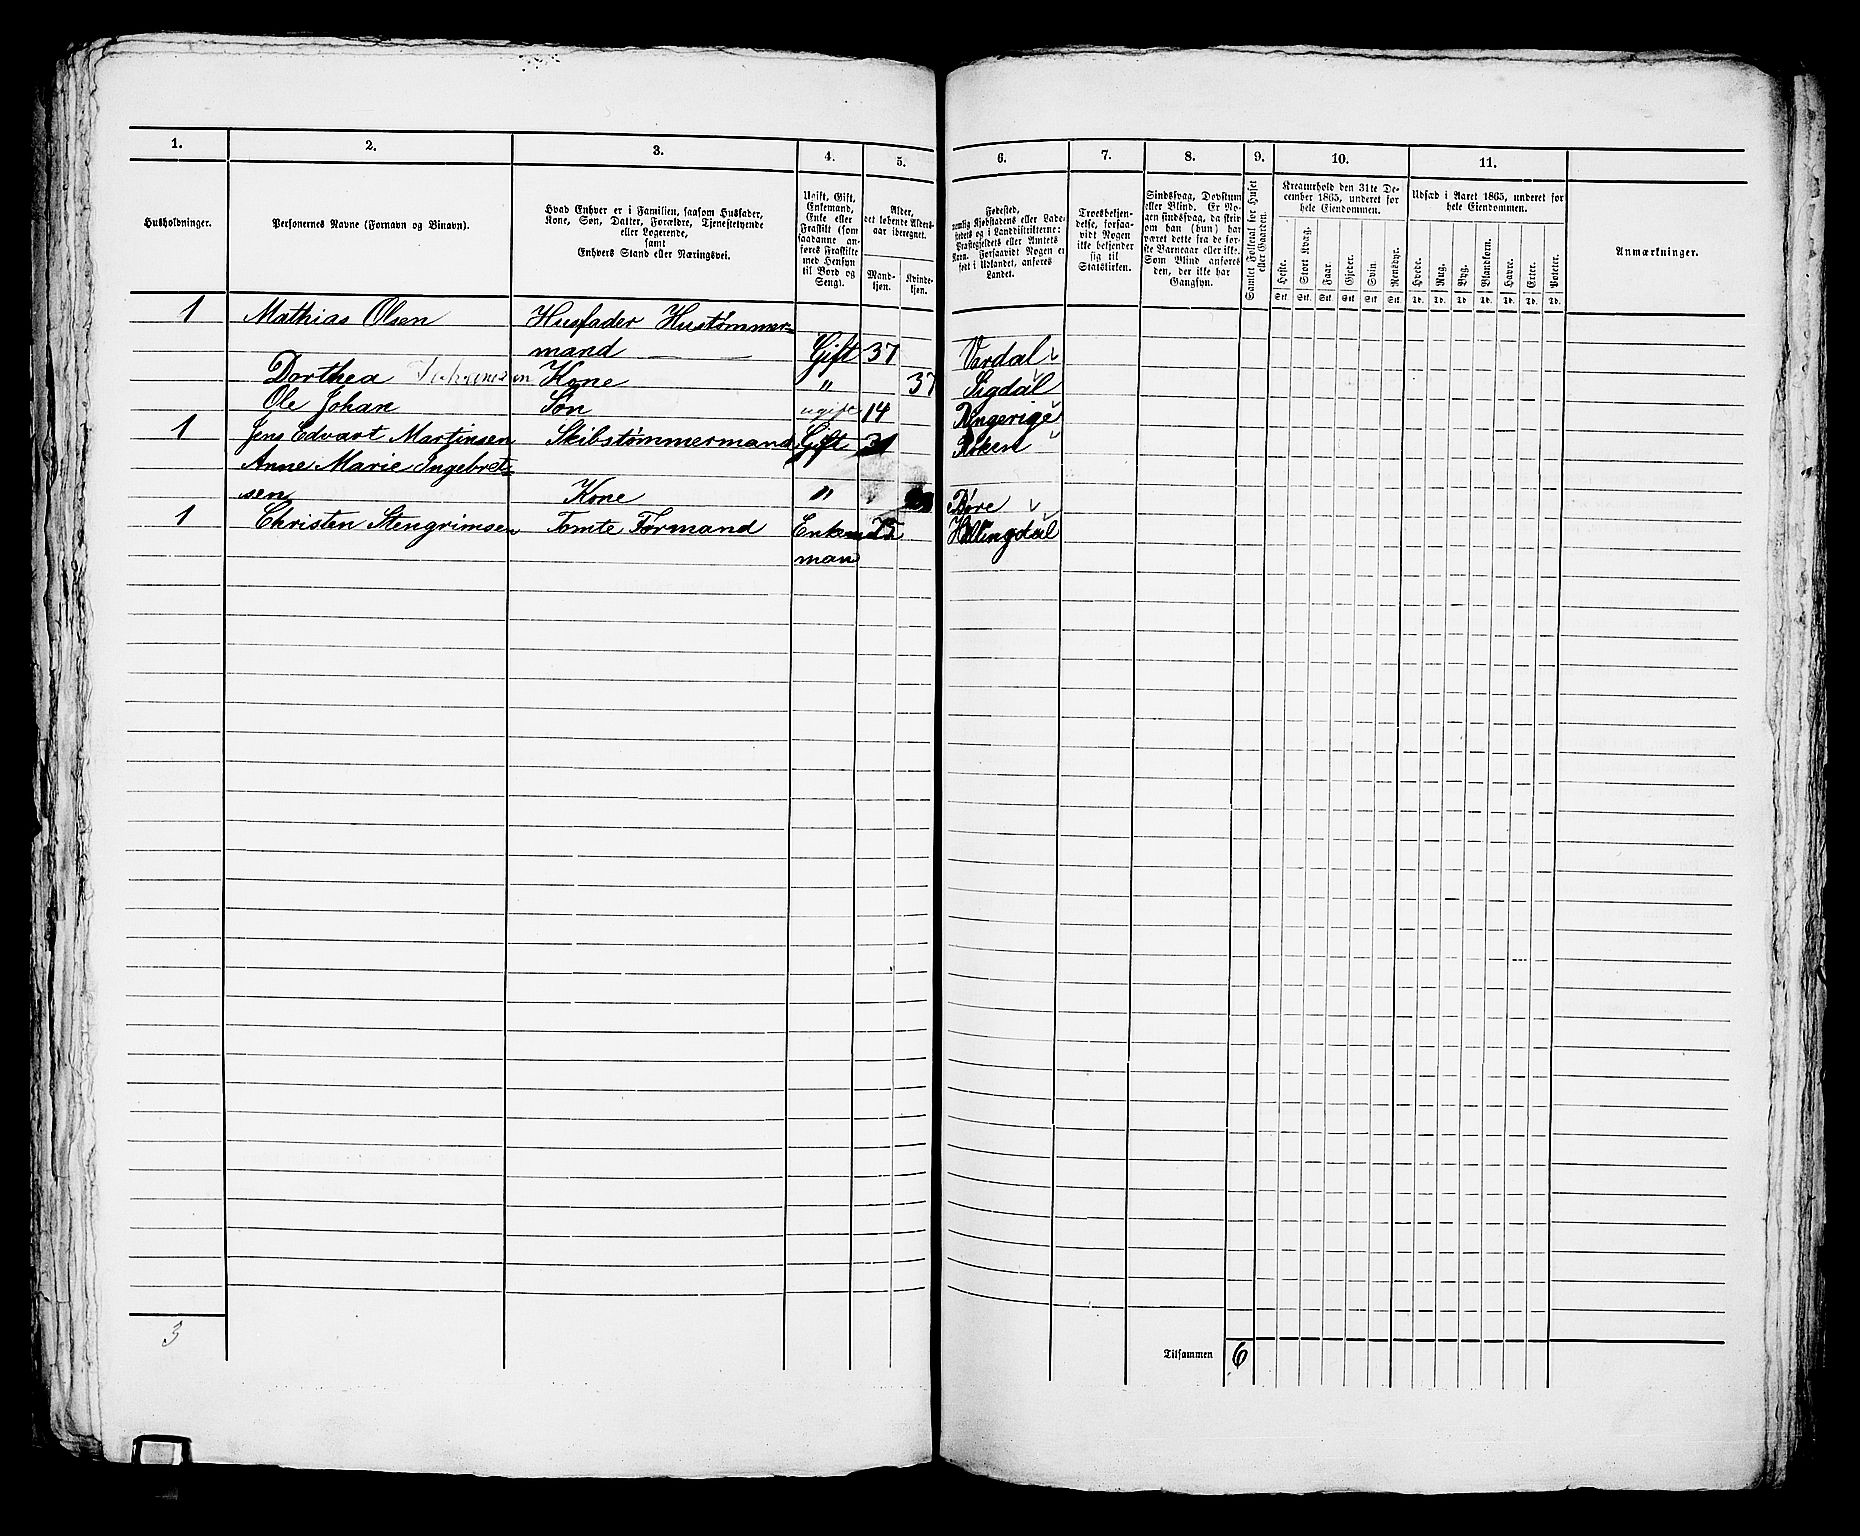 1. 2. 3. 4. 5. 6. 7. 8. 9. 10. 11.
Husholdninger.
Personernes Navne (Fornavn og Binavn).
Hvad Enhver er i Familien, saasom Husfader,
Kone, Søn, Datter, Forældre, Tjenestetyende
eller Logerende,
samt
Enhvers Stand eller Næringsvei.
Ugift, Gift,
Enkemand,
Enke eller
Fraskilt (som
saadanne an-
føres Fraskilte
med Hensyn
til Bord og
Seng).
Alder,
det løbende Alders-
aar iberegnet.
Mand-
kjøn.
Kvinde-
kjøn.
Fødested,
nemlig Kjøbstadens eller Lade-
stedets og i Landdistrikterne:
Præstegjeldets eller Amtets
Navn. Forsaavidt Nogen er
født i Udlandet, anføres
Landet.
Troesbekjen-
delse, forsaa-
vidt Nogen
ikke bekjender
sig til
Statskirken.
Sindssvag, Døvstum
eller Blind. Er No-
gen sindssvag, da skriv
om han (hun) har
været dette fra de før-
ste Barneaar eller ikke.
Som Blind anføres
den, der ikke har
Gangsyn.
Samlet Folketal for Huset
eller Gaarden.
Kreaturhold den 31te De-
cember 1865, underet for
hele Eiendommen.
Heste. Stort Kvæg. Faar. Gjeder. Svin. Rensdyr.
Stk. Stk. Stk. Stk. Stk. Stk.
Udsæd i Aaret 1865, underet for
hele Eiendommen.
Hvede. Rug. Byg. Blandkorn. Havre. Erter. Poteter.
Td. Td. Td. Td. Td. Td. Td.
Anmærkninger.
1 Mathias Olsen Husfader Hustømmer-
mand Gift 37 Vardal
Dorthea Kone " 37 Sigdal
Ole Johan Søn ugift 14 Ringerige
1 Jens Edvart Martinsen Skibstømmermand Gift Røken
Anne Marie Ingebret-
sen Kone "
1 Christen Stengrimsen Tomte Formand Enke 75 Hallingdal
man
3
Tilsammen 6